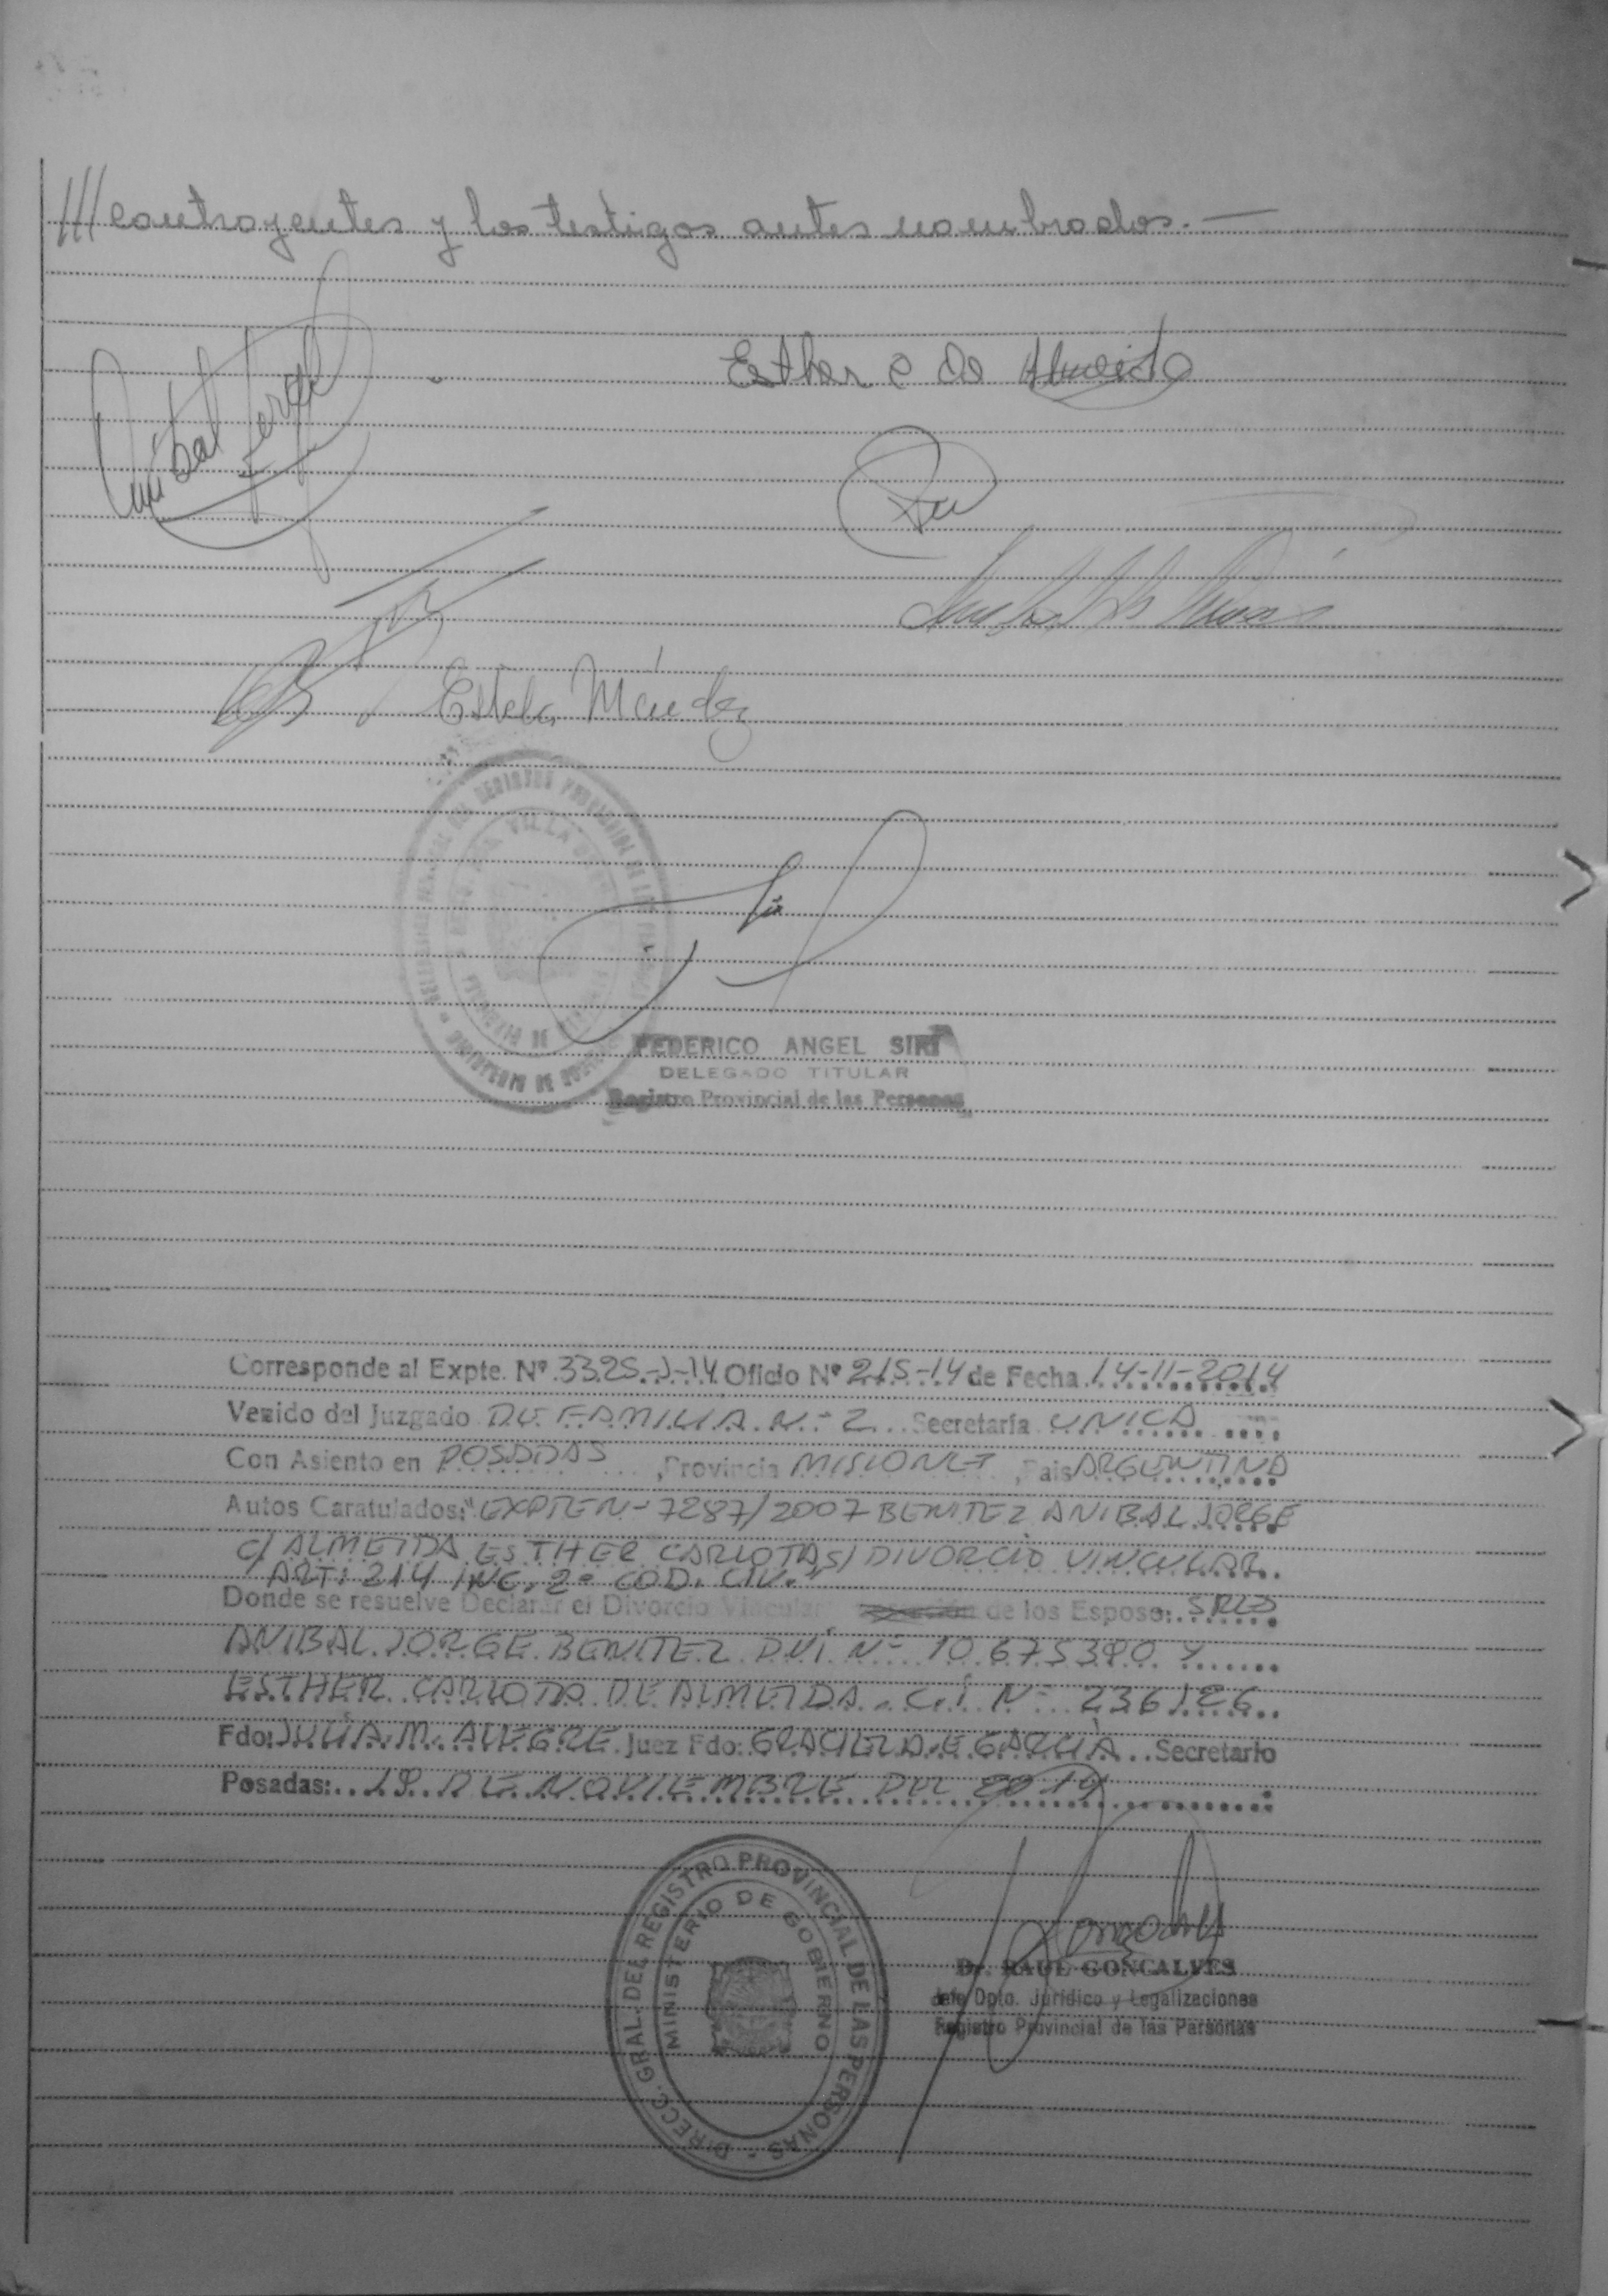 /// contrayentes y los testigos antes nombrados.—
Anibal Jorge
Esther C de Almeida
Estela Méndez
FEDERICO ANGEL SIRI
DELEGADO TITULAR
Registro Provincial de las Personas
Corresponde al Expte. Nº 3325-J-14 Oficio Nº 215-14 de Fecha 14-11-2014
Venido del Juzgado DE FAMILIA N-2 Secretaría UNICA
Con Asiento en POSADAS, Provincia MISIONES, Pais ARGENTINA
Autos Caratulados: "EXPTE N- 7287/2007 BENITEZ ANIBAL JORGE
C/ ALMEIDA ESTHER CARLOTA S/ DIVORCIO VINCULAR
ART: 214 INC, 2º COD. CIV."
Donde se resuelve Declarar el Divorcio Vincular de los Esposo: SRES
ANIBAL JORGE BENITEZ D.N.I. Nº 10.675390 Y
ESTHER CARLOTA DE ALMEIDA. C.I. Nº 236126
Fdo: JULIA M. ALEGRE Juez Fdo: GRACIELA E GARCIA Secretario
Posadas: 19 DE NOVIEMBRE DEL 2014
DIRECC. GRAL. DEL REGISTRO PROVINCIAL DE LAS PERSONAS
MINISTERIO DE GOBIERNO
Dr. RAUL GONCALVES
Jefe Dpto. Jurídico y Legalizaciones
Registro Provincial de las Personas